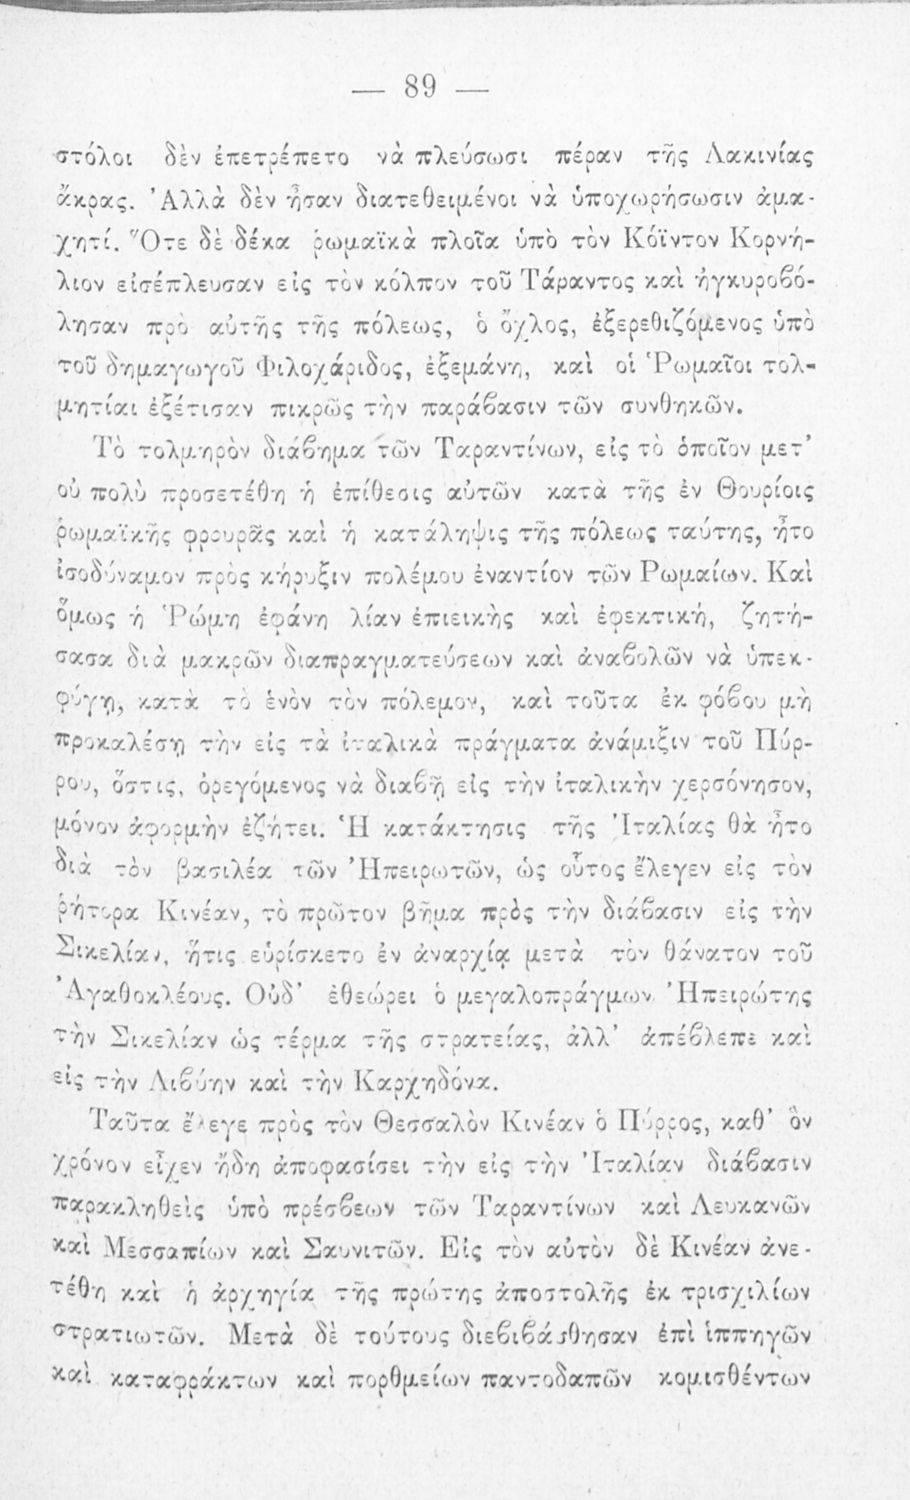 — 89 —
στόλοι δὲν ἐπετρέπετο νὰ πλεύσωσι πέραν τῆς Λακινίας
ἄκρας. Ἀλλὰ δὲν ἦσαν διατεθειμένοι νὰ ὑποχωρήσωσιν ἀμα-
χητί. Ὅτε δὲ δέκα ῥωμαϊκὰ πλοῖα ὑπὸ τὸν Κόϊντον Κορνή-
λιον εἰσέπλευσαν εἰς τὸν κόλπον τοῦ Τάραντος καὶ ἠγκυροβό-
λησαν πρὸ αὐτῆς τῆς πόλεως, ὁ ὄχλος, ἐξερεθιζόμενος ὑπὸ
τοῦ δημαγωγοῦ Φιλοχάριδος, ἐξεμάνη, καὶ οἱ Ῥωμαῖοι τολ-
μητίαι ἐξέτισαν πικρῶς τὴν παράβασιν τῶν συνθηκῶν.
Τὸ τολμηρὸν διάβημα τῶν Ταραντίνων, εἰς τὸ ὁποῖον μετ’
οὐ πολὺ προσετέθη ἡ ἐπίθεσις αὐτῶν κατὰ τῆς ἐν Θουρίοις
ῥωμαϊκῆς φρουρᾶς καὶ ἡ κατάληψις τῆς πόλεως ταύτης, ἦτο
ἰσοδύναμον πρὸς κήρυξιν πολέμου ἐναντίον τῶν Ῥωμαίων. Καὶ
ὅμως ἡ Ῥώμη ἐφάνη λίαν ἐπιεικὴς καὶ ἐφεκτική, ζητή-
σασα διὰ μακρῶν διαπραγματεύσεων καὶ ἀναβολῶν νὰ ὑπεκ-
φύγῃ, κατὰ τὸ ἑνὸν τὸν πόλεμον, καὶ τοῦτα ἐκ φόβου μὴ
προκαλέσῃ τὴν εἰς τὰ ἰταλικὰ πράγματα ἀνάμιξιν τοῦ Πύρ-
ρου, ὅστις, ὀρεγόμενος νὰ διαβῇ εἰς τὴν ἰταλικὴν χερσόνησον,
μόνον ἀφορμὴν ἐζήτει. Ἡ κατάκτησις τῆς Ἰταλίας θὰ ἦτο
διὰ τὸν βασιλέα τῶν Ἠπειρωτῶν, ὡς οὗτος ἔλεγεν εἰς τὸν
ῥήτορα Κινέαν, τὸ πρῶτον βῆμα πρὸς τὴν διάβασιν εἰς τὴν
Σικελίαν, ἥτις εὑρίσκετο ἐν ἀναρχίᾳ μετὰ τὸν θάνατον τοῦ
Ἀγαθοκλέους. Οὐδ’ ἐθεώρει ὁ μεγαλοπράγμων Ἠπειρώτης
τὴν Σικελίαν ὡς τέρμα τῆς στρατείας, ἀλλ’ ἀπέβλεπε καὶ
εἰς τὴν Λιβύην καὶ τὴν Καρχηδόνα.
Ταῦτα ἔλεγε πρὸς τὸν Θεσσαλὸν Κινέαν ὁ Πύρρος, καθ’ ὃν
χρόνον εἶχεν ἤδη ἀποφασίσει τὴν εἰς τὴν Ἰταλίαν διάβασιν
παρακληθεὶς ὑπὸ πρέσβεων τῶν Ταραντίνων καὶ Λευκανῶν
καὶ Μεσσαπίων καὶ Σαυνιτῶν. Εἰς τὸν αὐτὸν δὲ Κινέαν ἀνε-
τέθη καὶ ἡ ἀρχηγία τῆς πρώτης ἀποστολῆς ἐκ τρισχιλίων
στρατιωτῶν. Μετὰ δὲ τούτους διεβιβάσθησαν ἐπὶ ἱππηγῶν
καὶ καταφράκτων καὶ πορθμείων παντοδαπῶν κομισθέντων